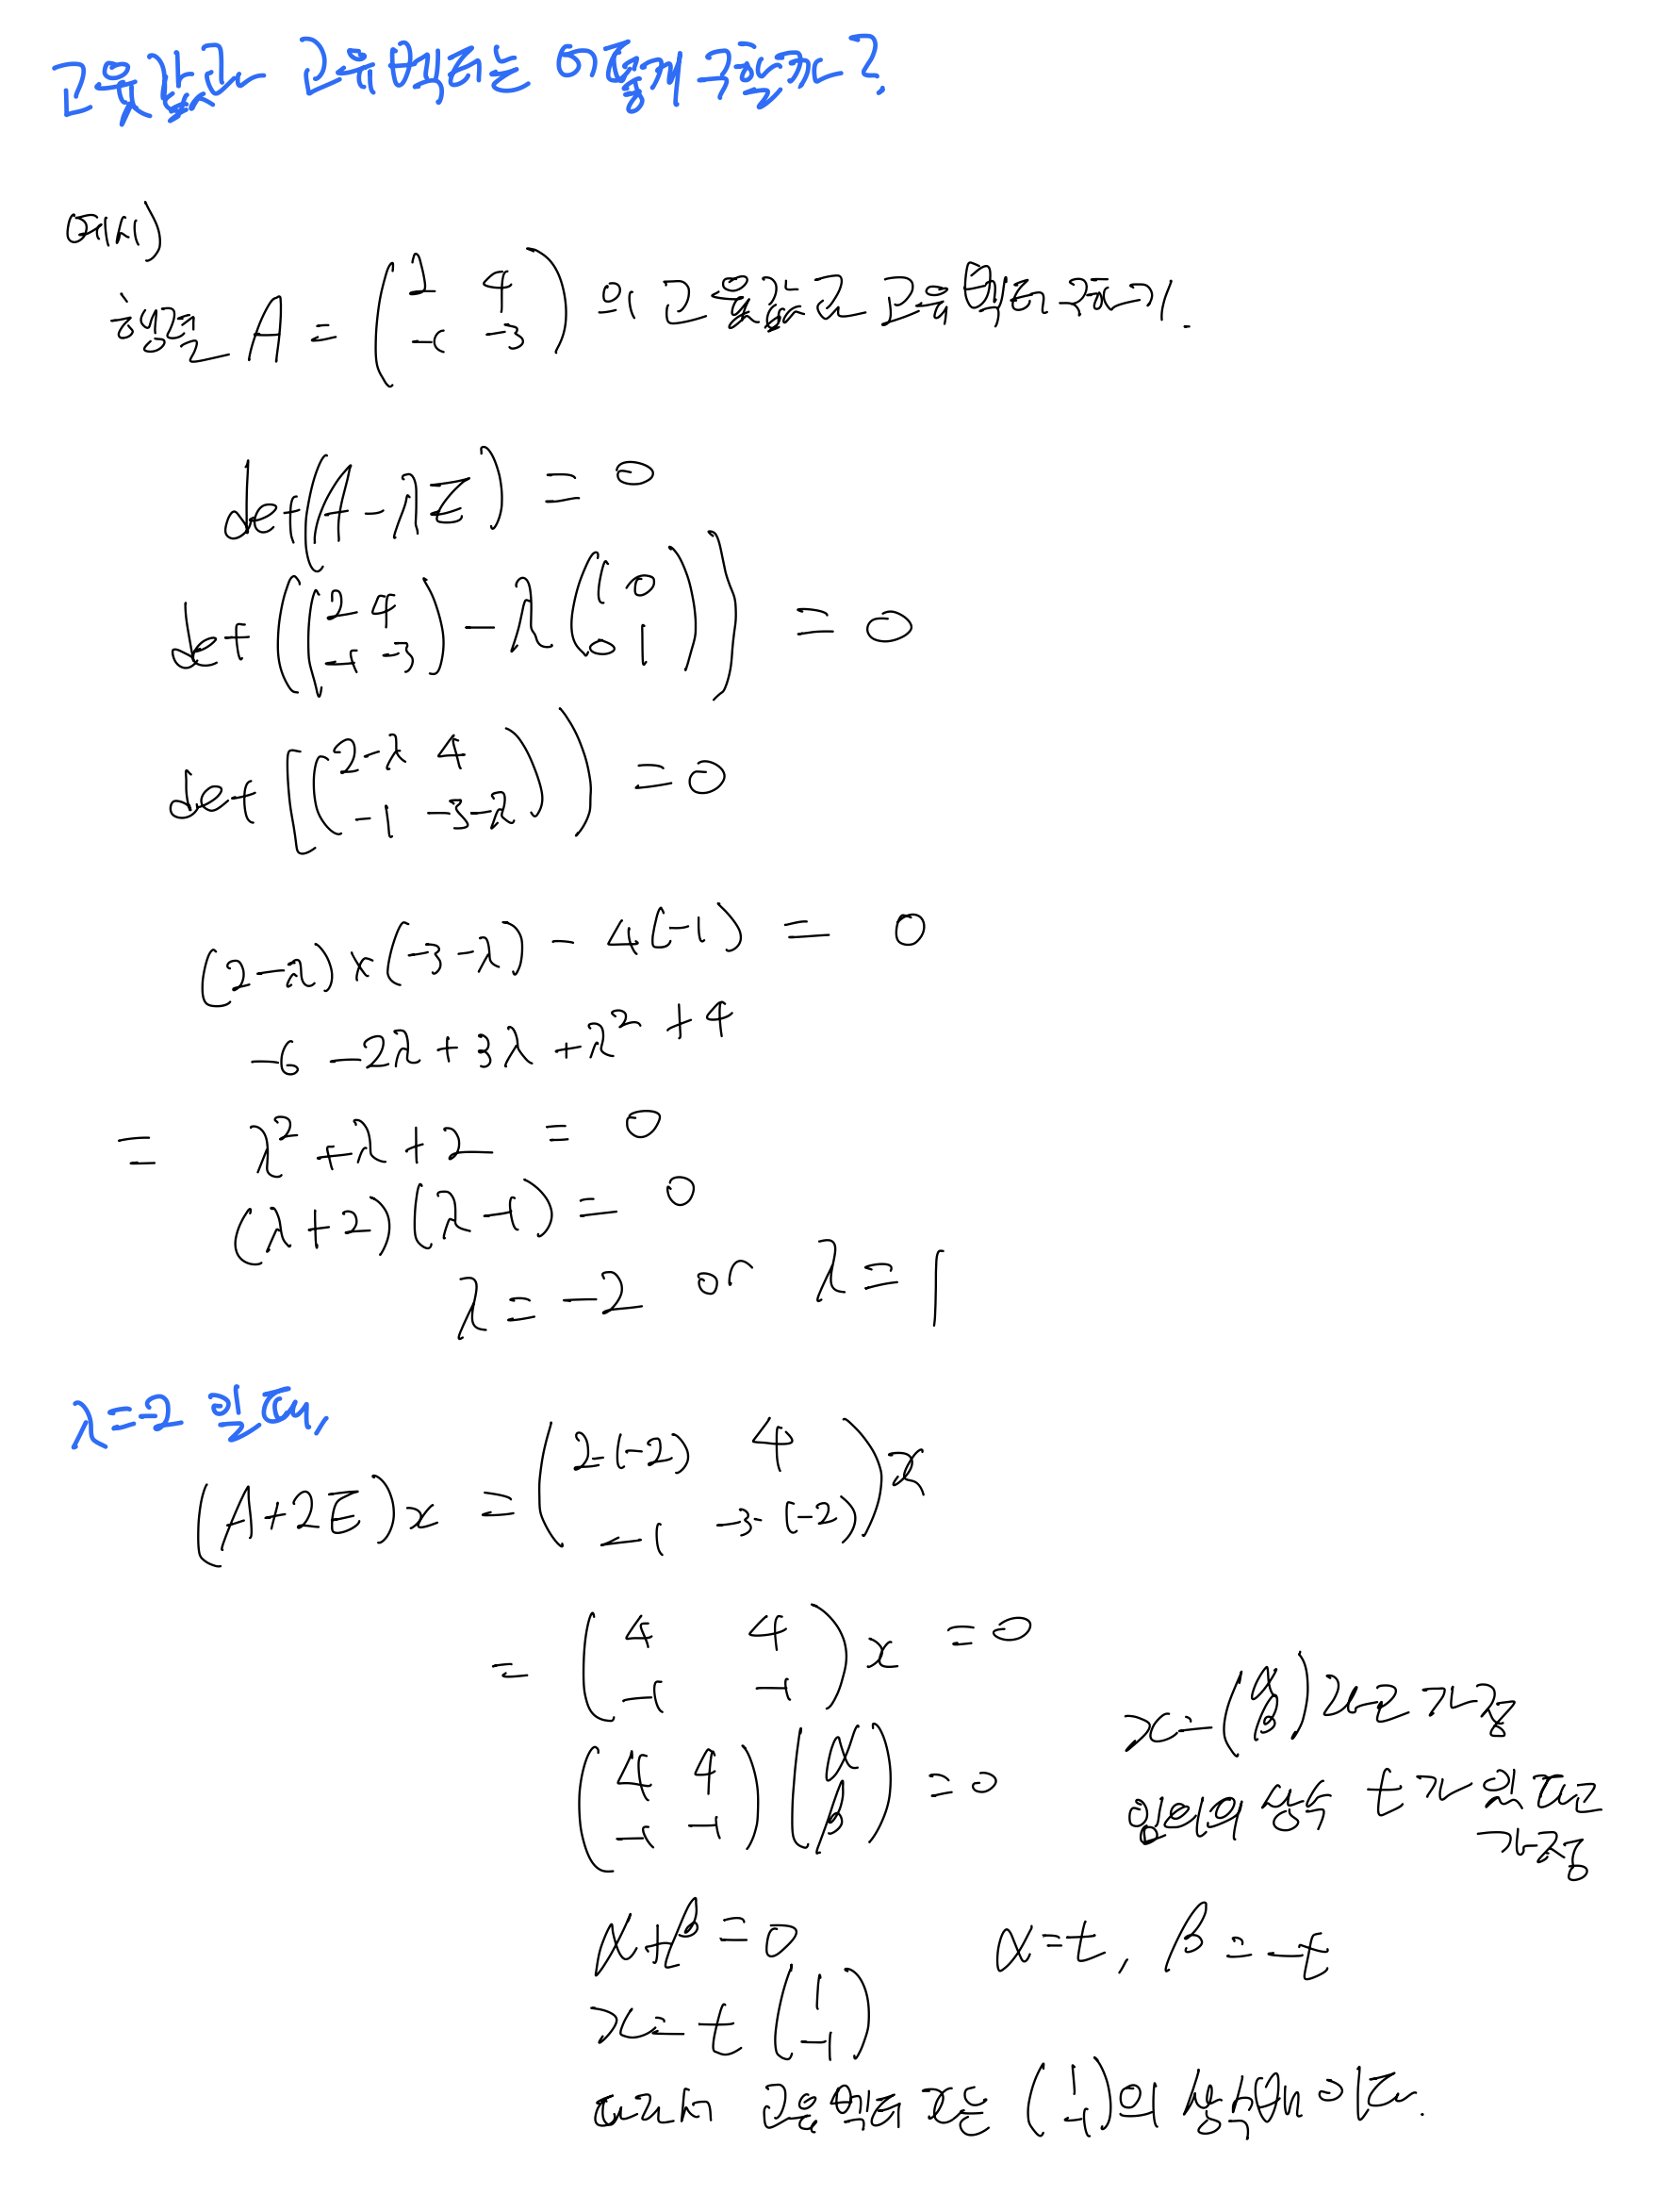 고윳값과 고유벡터는 어떻게 구할까?
예시)
행렬 A = ( 2 4 -1 -3 ) 의 고윳값과 고유벡터 구하기.
det(A-λE) = 0
det((2 4 -1 -3) - λ(1 0 0 1)) = 0
det((2-λ 4 -1 -3-λ)) = 0
(2-λ)×(-3-λ) - 4(-1) = 0
-6 -2λ + 3λ + λ² + 4
= λ² + λ + 2 = 0
(λ+2)(λ-1) = 0
λ = -2 or λ = 1
λ=-2 일 때,
(A+2E)x = (2-(-2) 4 -1 -3-(-2))x
= (4 4 -1 -1)x = 0
x=(α β)라고 가정
(4 4 -1 -1)(α β) = 0
임의의 상수 t가 있다고 가정
α+β=0 α=t, β=-t
x= t(1 -1)
따라서 고유벡터 x는 (1 -1)의 상수배이다.